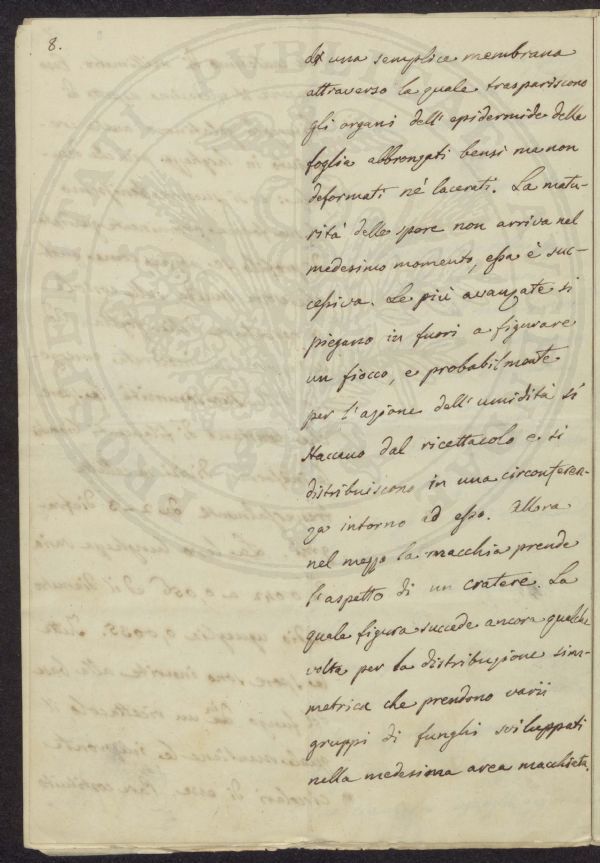 8.
di una semplice membrana
attraverso la quale traspariscono
gli organi dell'epidermide della
foglia abbronzati bensì ma non
deformati nè lacerati. La matu-
rità delle spore non arriva nel
medesimo momento, essa è suc-
cessiva. Le più avanzate si
piegano in fuori a figurare
un fiocco, e probabilmente
per l'azione dell'umidità si
staccano dal ricettacolo e si
distribuiscono in una circonferen-
za intorno ad esso. Allora
nel mezzo la macchia prende
l'aspetto di un cratere. La
quale figura succede ancora qualche
volta per la distribuzione sim-
metrica che prendono varii
gruppi di funghi sviluppati
nella medesima area macchiata.